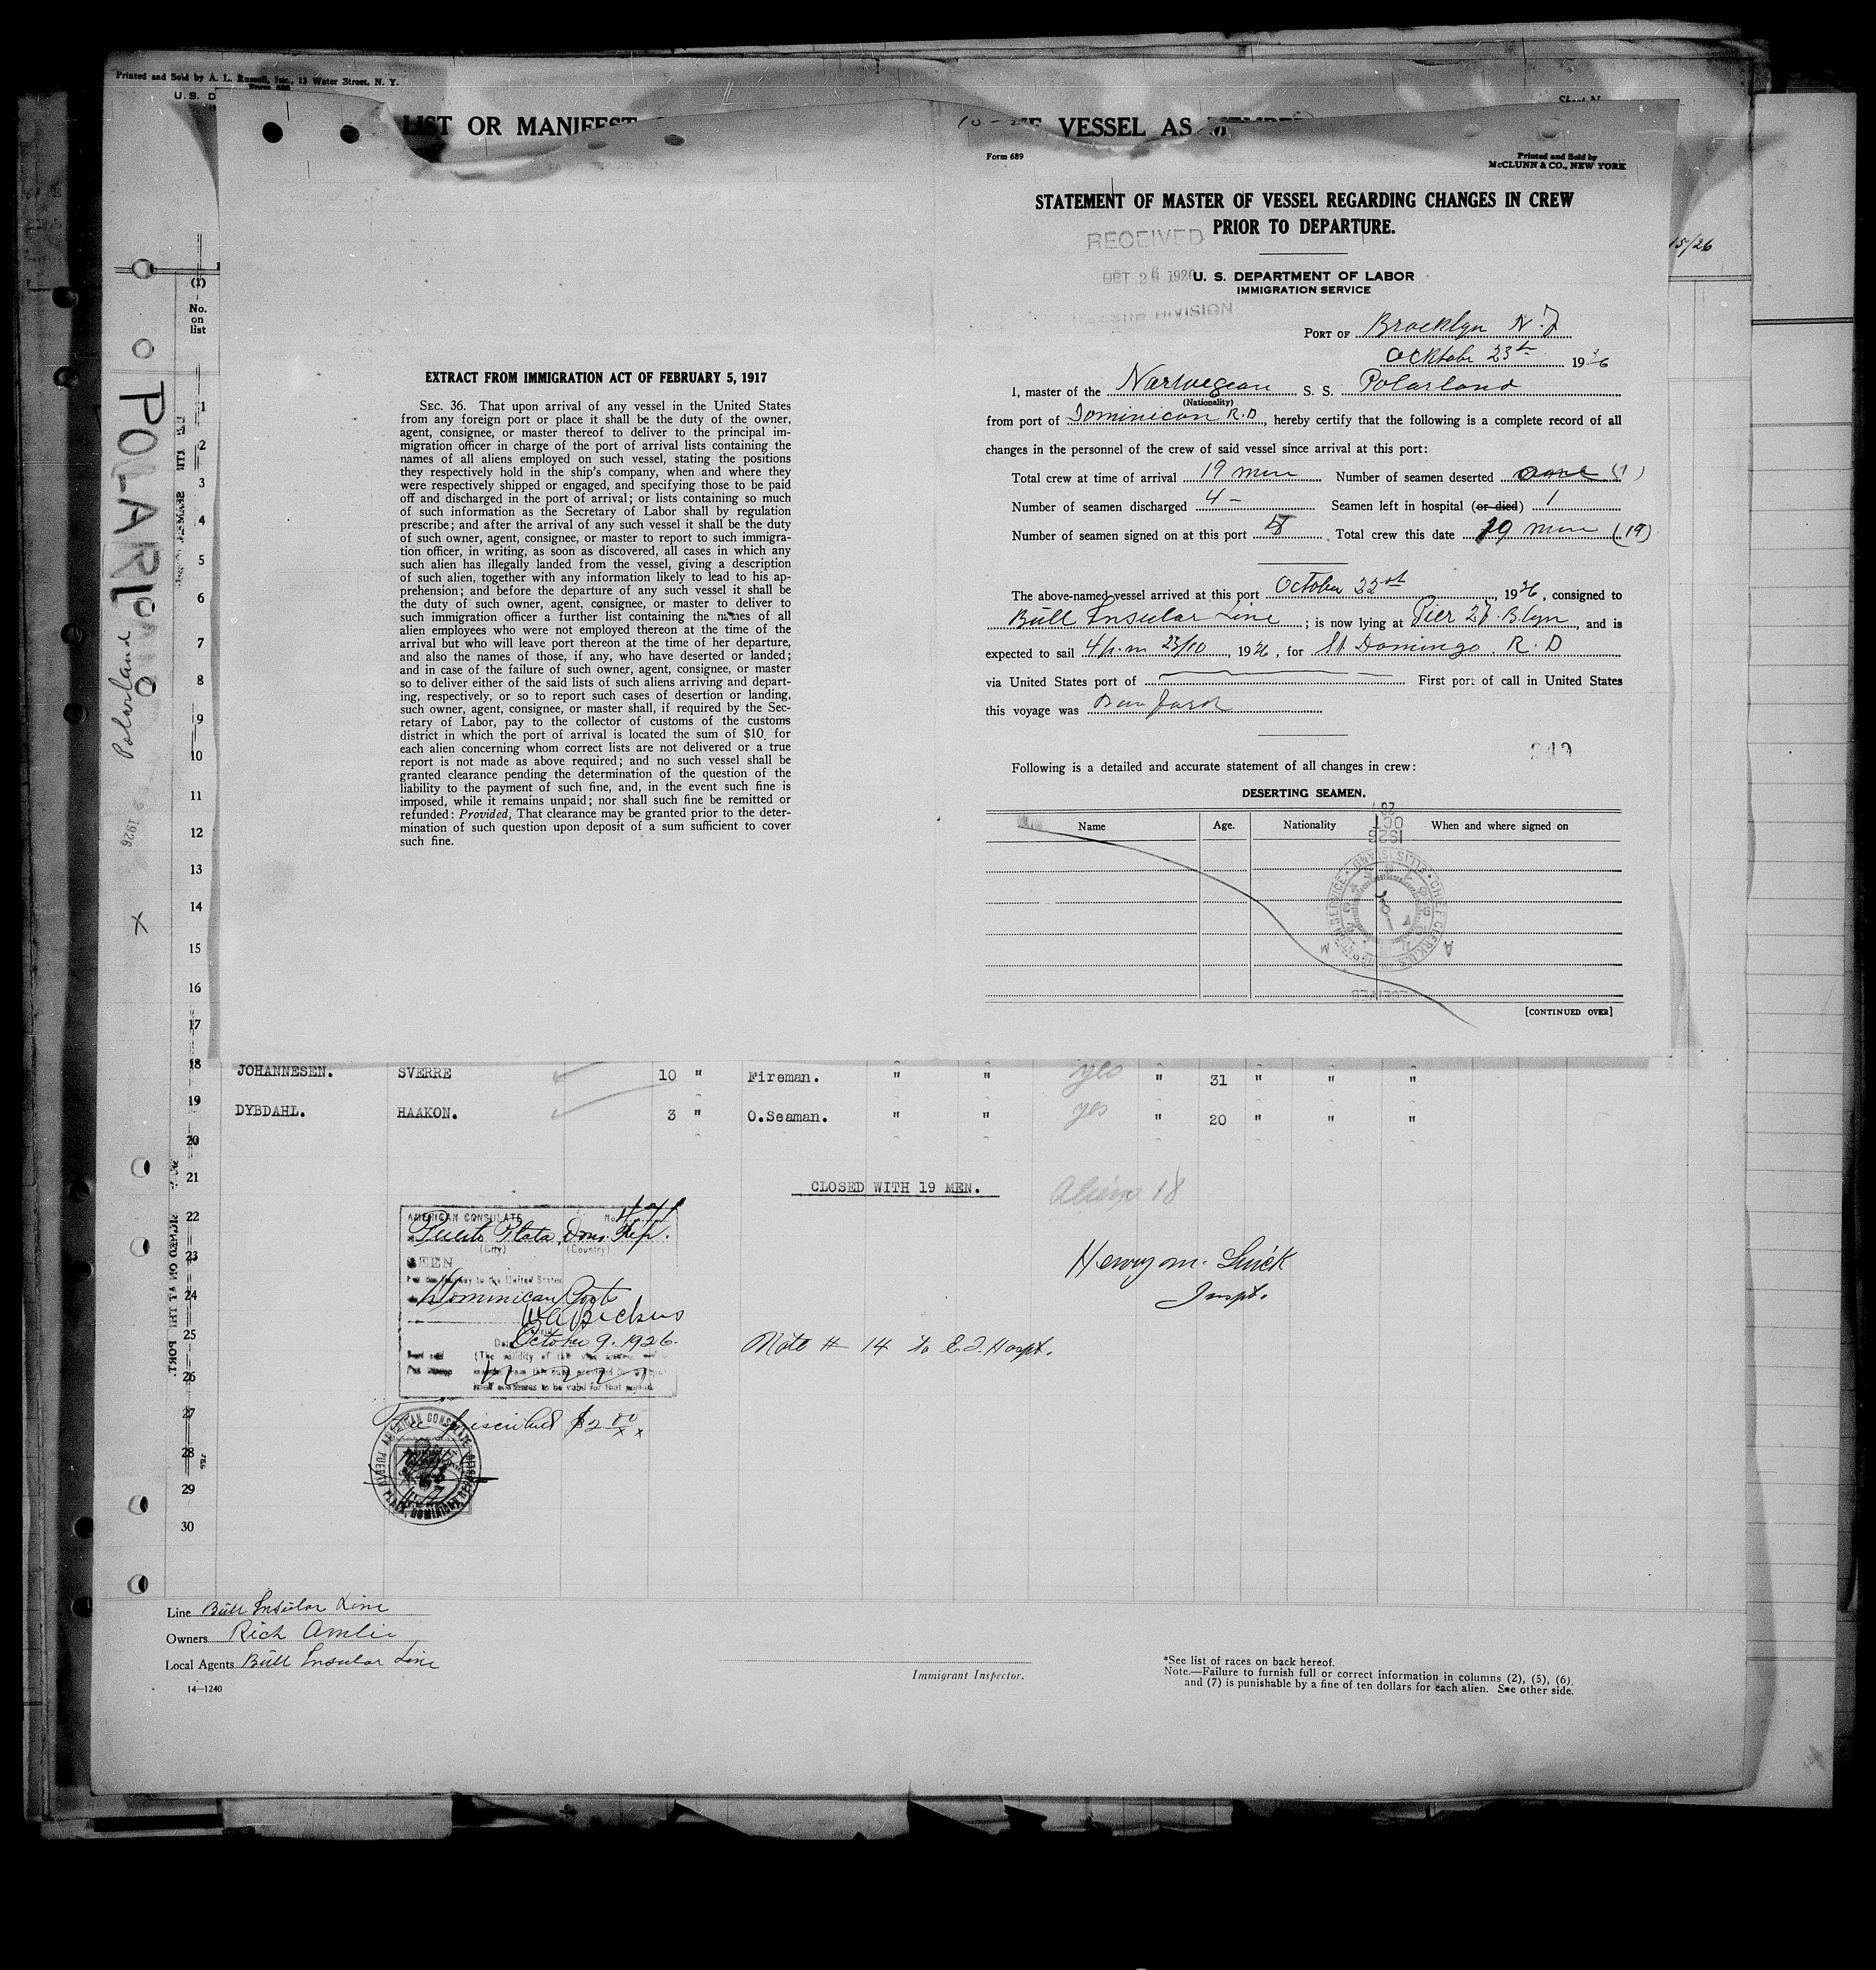 Printed and Sold by A. L. Russell, Inc., 13 Water Street, N. Y.
U. S. D
LIST OR MANIFEST
VESSEL AS
15/26
POLARLAND
Polarland
1926
X
(1)
No.
on
list
1
2
3
4
5
6
7
8
9
10
11
12
13
14
15
16
17
EXTRACT FROM IMMIGRATION ACT OF FEBRUARY 5, 1917
SEC. 36. That upon arrival of any vessel in the United States
from any foreign port or place it shall be the duty of the owner,
agent, consignee, or master thereof to deliver to the principal im-
migration officer in charge of the port of arrival lists containing the
names of all aliens employed on such vessel, stating the positions
they respectively hold in the ship's company, when and where they
were respectively shipped or engaged, and specifying those to be paid
off and discharged in the port of arrival; or lists containing so much
of such information as the Secretary of Labor shall by regulation
prescribe; and after the arrival of any such vessel it shall be the duty
of such owner, agent, consignee, or master to report to such immigra-
tion officer, in writing, as soon as discovered, all cases in which any
such alien has illegally landed from the vessel, giving a description
of such alien, together with any information likely to lead to his ap-
prehension; and before the departure of any such vessel it shall be
the duty of such owner, agent, consignee, or master to deliver to
such immigration officer a further list containing the names of all
alien employees who were not employed thereon at the time of the
arrival but who will leave port thereon at the time of her departure,
and also the names of those, if any, who have deserted or landed;
and in case of the failure of such owner, agent, consignee, or master
so to deliver either of the said lists of such aliens arriving and depart-
ing, respectively, or so to report such cases of desertion or landing,
such owner, agent, consignee, or master shall, if required by the Sec-
retary of Labor, pay to the collector of customs of the customs
district in which the port of arrival is located the sum of $10. for
each alien concerning whom correct lists are not delivered or a true
report is not made as above required; and no such vessel shall be
granted clearance pending the determination of the question of the
liability to the payment of such fine, and, in the event such fine is
imposed, while it remains unpaid; nor shall such fine be remitted or
refunded: Provided, That clearance may be granted prior to the deter-
mination of such question upon deposit of a sum sufficient to cover
such fine.
Form 689
Printed and Sold by
McCLUNN & CO., NEW YORK
STATEMENT OF MASTER OF VESSEL REGARDING CHANGES IN CREW
PRIOR TO DEPARTURE.
RECEIVED
OCT 26 1926
DIVISION
U. S. DEPARTMENT OF LABOR
IMMIGRATION SERVICE
PORT OF Brooklyn N.J
Ocktobe 23th 1926
I, master of the Norwegian S. S. Polarland
(Nationality)
from port of Dominican R.D, hereby certify that the following is a complete record of all
changes in the personnel of the crew of said vessel since arrival at this port:
Total crew at time of arrival 19 men Number of seamen deserted none (1)
Number of seamen discharged 4 — Seamen left in hospital (or died) 1
Number of seamen signed on at this port 5 Total crew this date 19 men (19)
The above-named vessel arrived at this port October 22st, 1926, consigned to
Bull Insular Line; is now lying at Pier 27 Blyn, and is
expected to sail 4 p.m 23/10, 1926, for St Domingo. R. D
via United States port of First port of call in United States
this voyage was
249
Following is a detailed and accurate statement of all changes in crew:
DESERTING SEAMEN.
Name Age. Nationality When and where signed on
OCT
1926
CHIEF CLERK, U.S. SERVICE ELLIS ISLAND
[CONTINUED OVER]
18 JOHANNESEN. SVERRE 10 " Fireman. " " yes " 31 " " "
19 DYBDAHL. HAAKON. 3 " O.Seaman. " " yes " 20 " " "
20
21 CLOSED WITH 19 MEN. Aliens 18
22
23
24
25
26
27
28
29
30
AMERICAN CONSULATE No.
Puerto Plata, Dom. Rep.
(City) (Country)
SEEN
For the journey to the United States
Dominican Govt
October 9. 1926.
Fee prescribed $2.00
AMERICAN CONSULATE PUERTO PLATA, DOMINICAN REPUBLIC
Henry M.
Inspt.
Note # 14 to E.I. Hospt.
Line Bull Insular Line
Owners Rich Amlie
Local Agents Bull Insular Line
14—1240
Immigrant Inspector.
*See list of races on back hereof.
Note.—Failure to furnish full or correct information in columns (2), (5), (6),
and (7) is punishable by a fine of ten dollars for each alien. See other side.